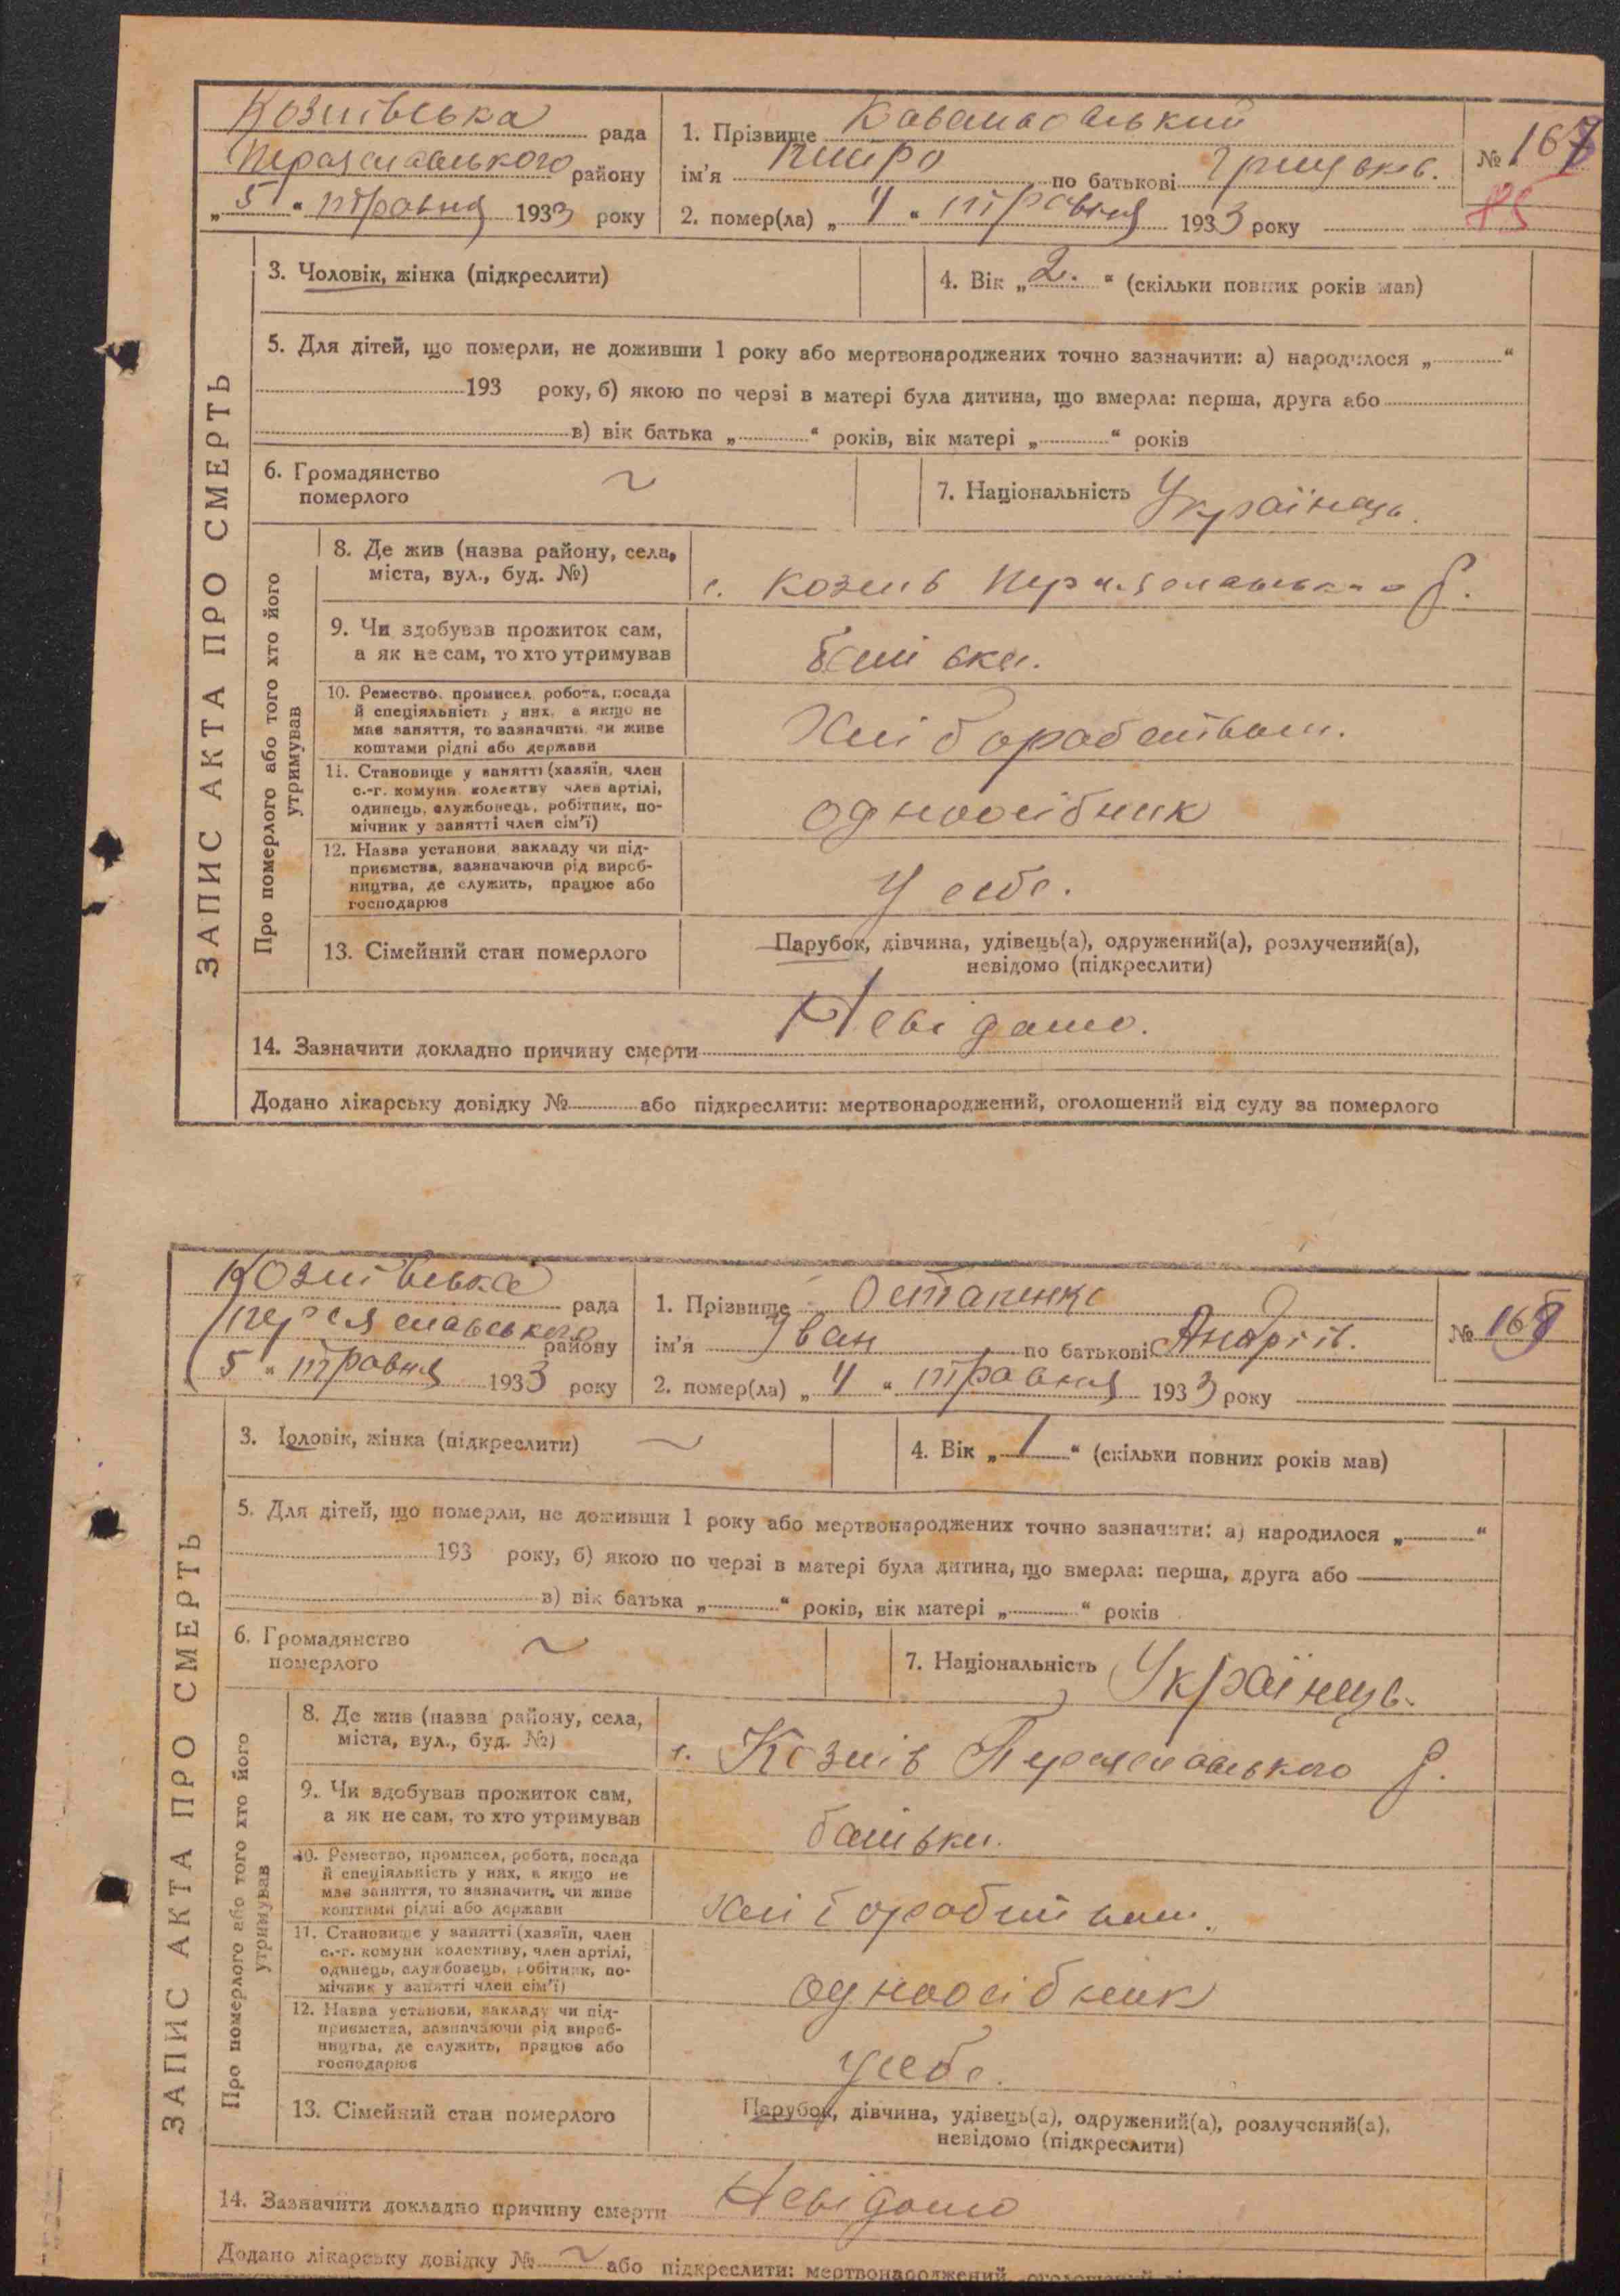 Козлівська рада
Переяславського району
„ 5 “ травня 1933 року
1. Прізвище
ім'я Петро по батькові Грицьків.
2. помер(ла) „ 4 “ травня 1933 року
№ 167
85
ЗАПИС АКТА ПРО СМЕРТЬ
3. Чоловік, жінка (підкреслити)
4. Вік „ 2. “ (скільки повних років мав)
5. Для дітей, що померли, не доживши 1 року або мертвонароджених точно зазначити: а) народилося „ “
193 року, б) якою по черзі в матері була дитина, що вмерла: перша, друга або
в) вік батька „ “ років, вік матері „ “ років
6. Громадянство
померлого ~
7. Національність Українець.
Про померлого або того хто його
утримував
8. Де жив (назва району, села,
міста, вул., буд. №)
с. Козлів Переяславського р.
9. Чи здобував прожиток сам,
а як не сам, то хто утримував
батьки.
10. Ремество, промисел, робота, посада
й спеціяльність у них, а якщо не
мав заняття, то зазначити, чи живе
коштами рідні або держави
Хліборобством.
11. Становище у занятті (хазяїн, член
с.-г. комуни, колективу, член артілі,
одинець, службовець, робітник, по-
мічник у занятті член сім'ї)
одноосібник
12. Назва установи, закладу чи під-
приємства, зазначаючи рід вироб-
ництва, де служить, працює або
господарює
У себе.
13. Сімейний стан померлого
Парубок, дівчина, удівець(а), одружений(а), розлучений(а),
невідомо (підкреслити)
14. Зазначити докладно причину смерти Невідомо.
Додано лікарську довідку № або підкреслити: мертвонароджений, оголошений від суду за померлого
Козлівська рада
Переяславського району
„ 5 “ травня 1933 року
1. Прізвище Остапенко
ім'я Іван по батькові Андріїв.
2. помер(ла) „ 4 “ травня 1933 року
№ 168
ЗАПИС АКТА ПРО СМЕРТЬ
3. Чоловік, жінка (підкреслити) ~
4. Вік „ 1 “ (скільки повних років мав)
5. Для дітей, що померли, не доживши 1 року або мертвонароджених точно зазначити: а) народилося „ “
193 року, б) якою по черзі в матері була дитина, що вмерла: перша, друга або
в) вік батька „ “ років, вік матері „ “ років
6. Громадянство
померлого ~
7. Національність Українець.
Про померлого або того хто його
утримував
8. Де жив (назва району, села,
міста, вул., буд. №)
с. Козлів Переяславського р.
9. Чи здобував прожиток сам,
а як не сам, то хто утримував
батьки.
10. Ремество, промисел, робота, посада
й спеціяльність у них, а якщо не
мав заняття, то зазначити, чи живе
коштами рідні або держави
хліборобством.
11. Становище у занятті (хазяїн, член
с.-г. комуни колективу, член артілі,
одинець, службовець, робітник, по-
мічник у занятті член сім'ї)
одноосібник
12. Назва установи, закладу чи під-
приємства, зазначаючи рід вироб-
ництва, де служить, працює або
господарює
у себе.
13. Сімейний стан померлого
Парубок, дівчина, удівець(а), одружений(а), розлучений(а),
невідомо (підкреслити)
14. Зазначити докладно причину смерти Невідомо
Додано лікарську довідку № ~ або підкреслити: мертвонароджений, оголошений від